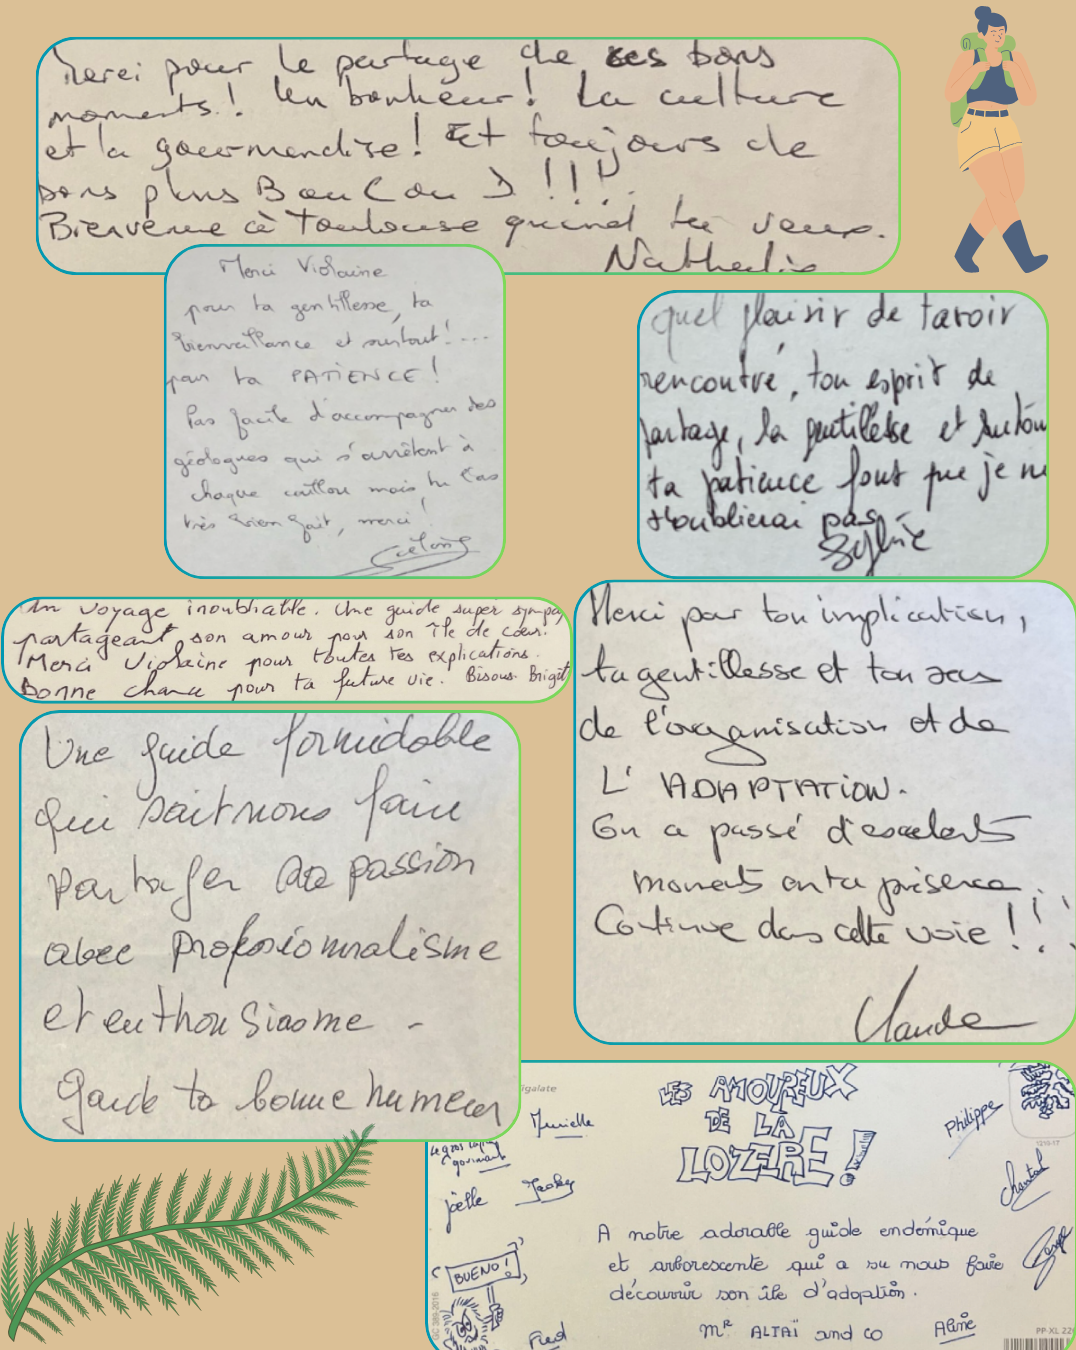 Merci pour le partage de ces bons
moments! Un bonheur! La culture
et la gourmandise! Et toujours de
bons plans BouCanD!!!
Bienvenue à Toulouse quand tu veux.
Nathalie
Merci Violaine
pour ta gentillesse, ta
bienveillance et surtout!....
pour ta PATIENCE!
Pas facile d'accompagner des
géologues qui s'arrêtent à
chaque caillou mais tu l'as
très bien fait, merci!
quel plaisir de t'avoir
rencontré, ton esprit de
partage, la gentillesse et surtout
ta patience font que je ne
t'oublierai pas.
Sylvie
Un voyage inoubliable. Une guide super sympa
partageant son amour pour son île de cœur.
Merci Violaine pour toutes tes explications.
Bonne chance pour ta future vie. Bisous. Brigit
Merci par ton implication,
ta gentillesse et ton sens
de l'organisation et de
L'ADAPTATION.
On a passé d'excelents
moments en ta présence.
Continue dans cette voie!!!
Claude
Une guide formidable
qui sait nous faire
partager sa passion
avec professionnalisme
et enthousiasme -
Garde ta bonne humeur
igalate
LES AMOUREUX
DE LA
LOZERE!
Murielle
Philippe
1210-17
gourmands
Joëlle
Jacky
Chantal
Serge
A notre adorable guide endémique
et arborescente qui a su nous faire
découvrir son île d'adoption.
BUENO!
GC 389-2016
Fred
Mr ALTAÏ and co
Aline
PP-XL 22